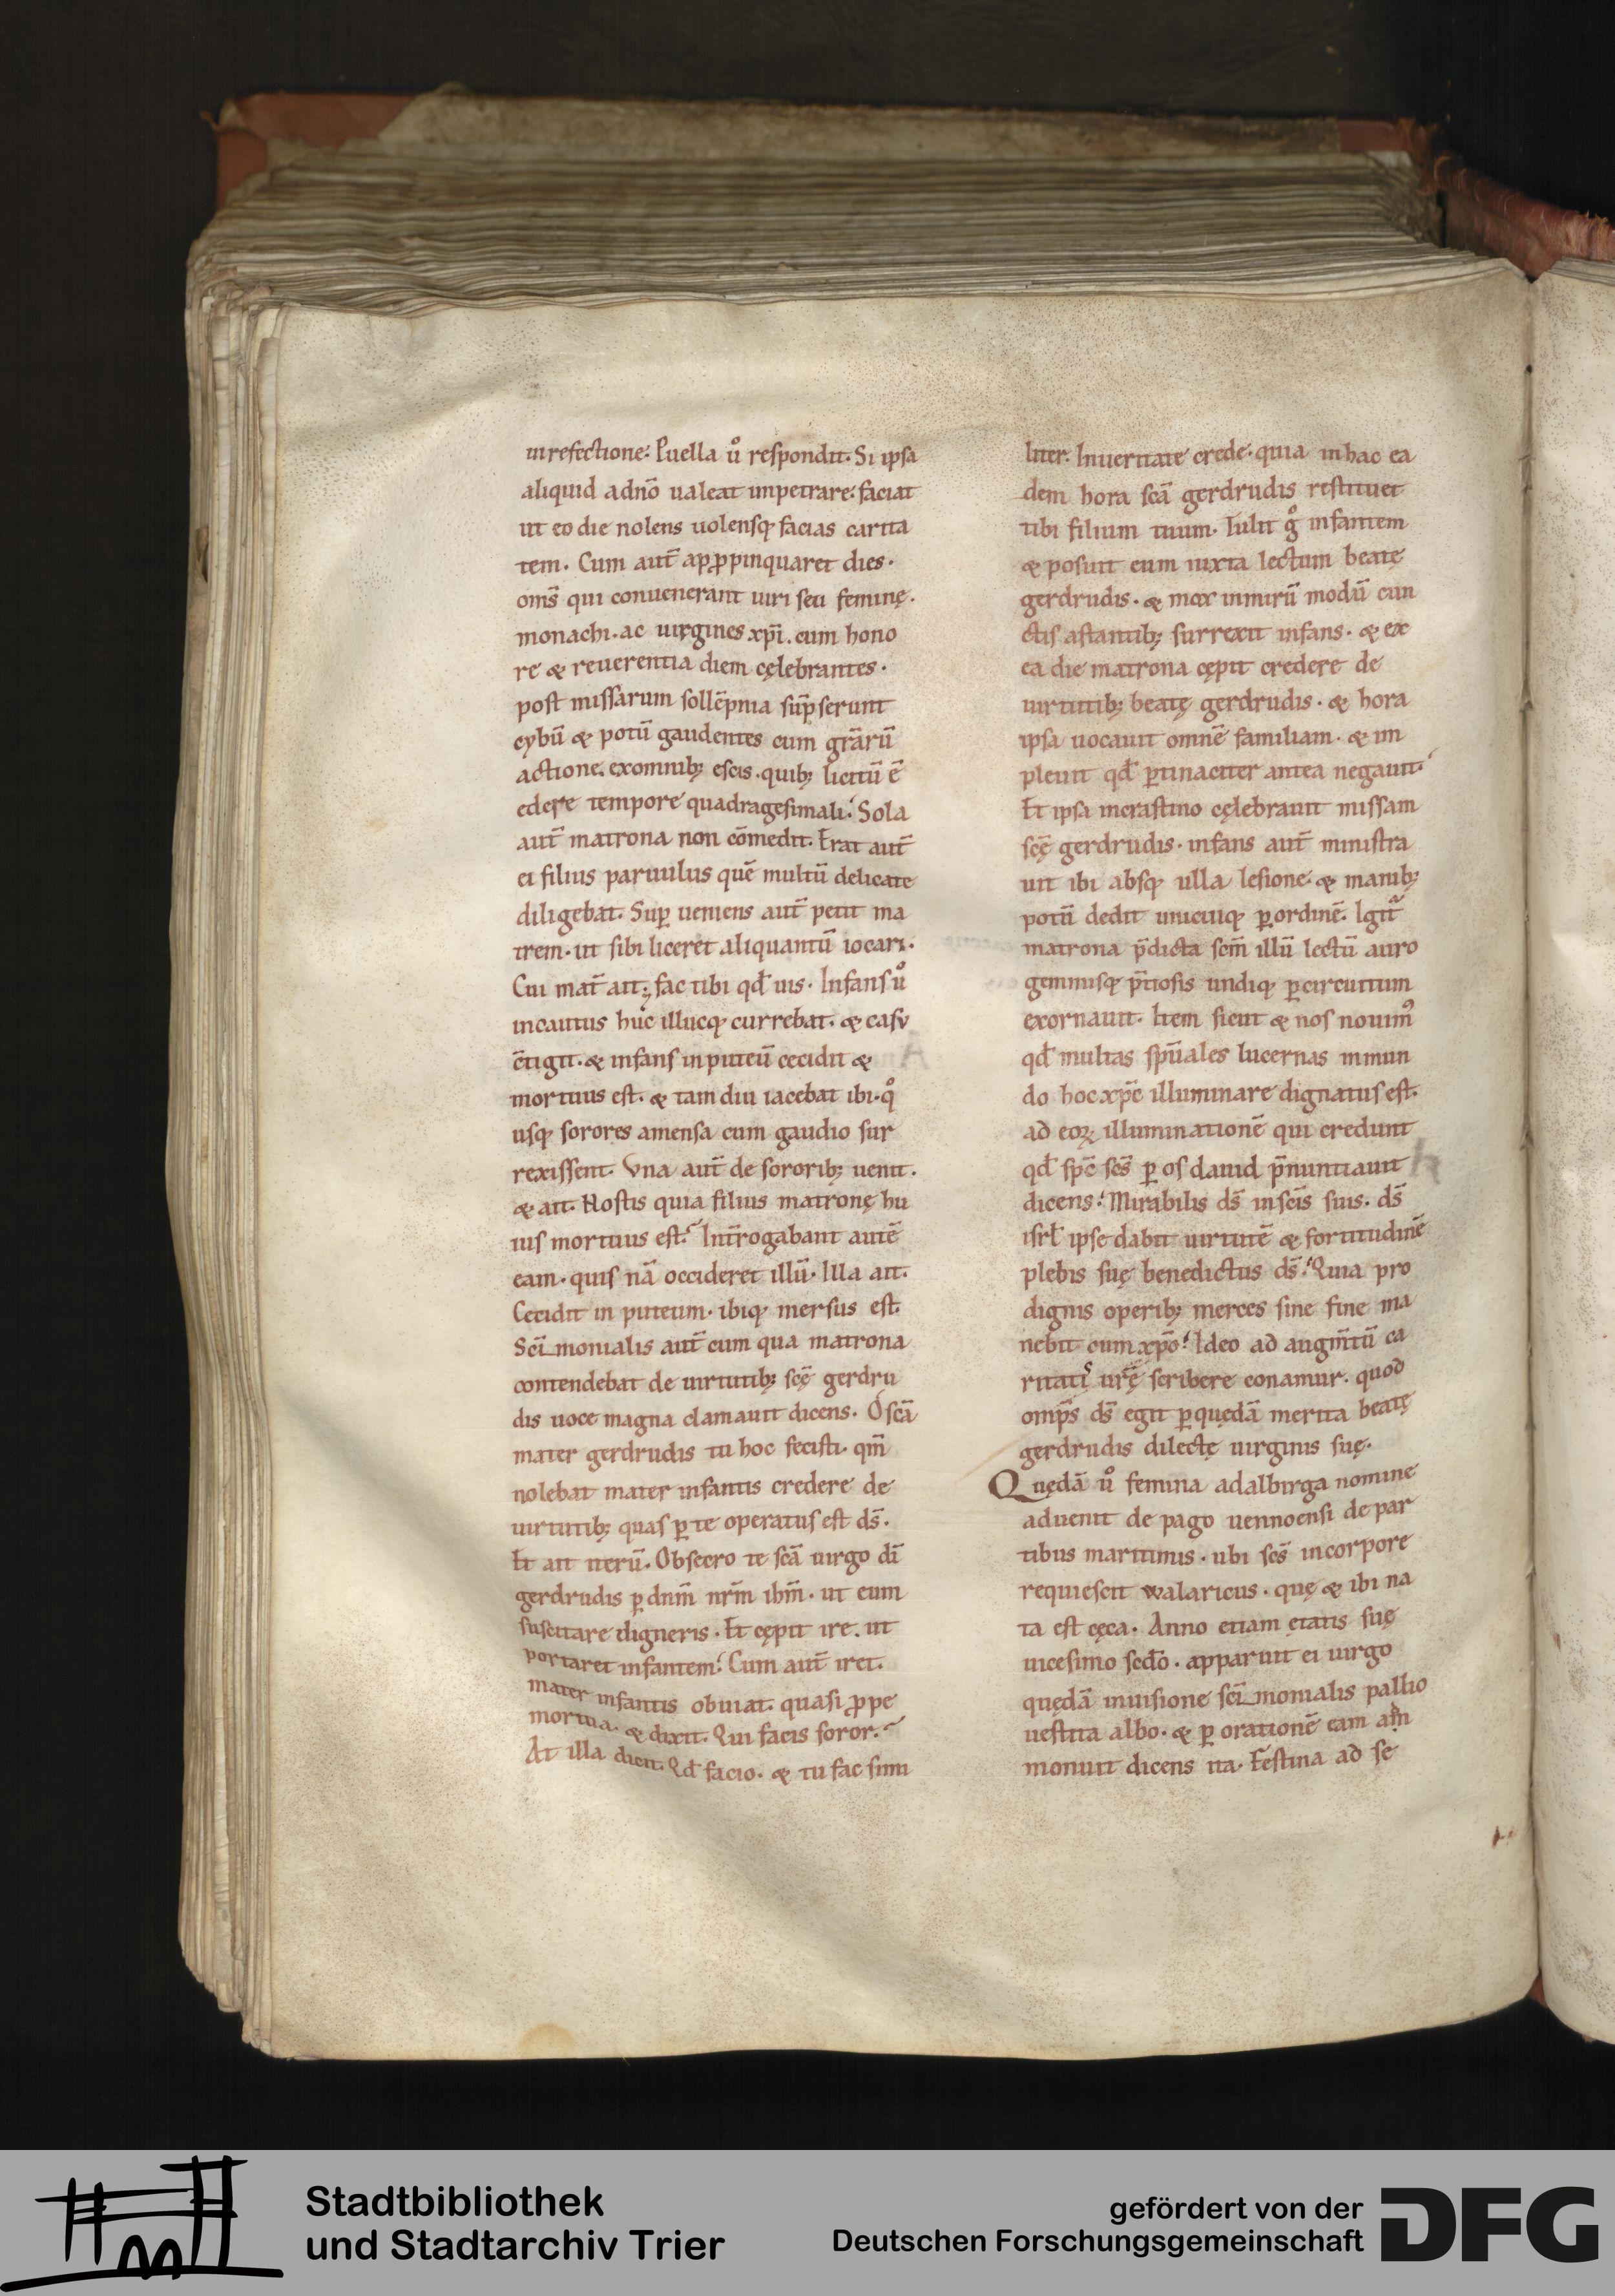 in refectione. Puella ů respondit. Si ipsa
aliquid a dnō ualeat impetrare. faciat
ut eo die nolens uolensq; facias carita
tem. Cum aut̄ appropinquaret dies.
om̄s qui conuenerant uiri seu feminę.
monachi. ac uirgines xp̄i. cum hono
re & reuerentia diem cęlebrantes.
post missarum sollēpnia sūpserunt
cybū & potū gaudentes cum gr̄arū
actione. ex omnib; escis. quib; licitū ē
edere tempore quadragesimali. Sola
aut̄ matrona non cōmedit. Erat aut̄
ei filius paruulus quē multū delicate
diligebat. Sup̱ ueniens aut̄ petit ma
trem. ut sibi liceret aliquantū iocari.
Cui mat̄ ait; fac tibi qđ uis. Infans ů
incautus huc illucq; currebat. & casu
c̄tigit. & infans in puteū cecidit &
mortuus est. & tam diu iacebat ibi. q̊
usq; sorores a mensa cum gaudio sur
rexissent. Vna aut̄ de sororib; uenit.
& ait. Nostis quia filius matronę hu
ius mortuus est. Int̄rogabant autē
eam. quis nā occideret illū. Illa ait.
Cecidit in puteum. ibiq; mersus est.
Sc̄i monialis aut̄ cum qua matrona
contendebat de uirtutib; sc̄ę gerdru
dis uoce magna clamauit dicens. O sc̄a
mater gerdrudis tu hoc fecisti. qm̄
nolebat mater infantis credere de
uirtutib; quas p̱ te operatus est ds̄.
Et ait iterū. Obsecro te sc̄a uirgo dī
gerdrudis p̱ dn̄m nr̄m ihm̄. ut eum
suscitare digneris. Et cępit ire. ut
portaret infantem. Cum aut̄ iret.
mater infantis obuiat. quasi ꝓpe
mortua. & dixit. Qui facis soror.
At illa dicit. Qđ facio. & tu fac simi
liter. In ueritate crede. quia in hac ea
dem hora sc̄a gerdrudis restituet
tibi filium tuum. Tulit g̊ infantem
& posuit eum iuxta lectum beatę
gerdrudis. & mox in mirū modū cun
ctis astantib; surrexit infans. & ex
ea die matrona cępit credere de
uirtutib; beatę gerdrudis. & hora
ipsa uocauit omnē familiam. & im
pleuit qđ p̱tinaciter antea negauit.
Et ipsa in crastino cęlebrauit missam
sc̄ę gerdrudis. infans aut̄ ministra
uit ibi absq; ulla lesione. & manib;
potū dedit unicuiq; p̱ ordinē. Igit̄
matrona p̄dicta sc̄m illū lectū auro
gemmisq; p̄tiosis undiq; p̱ circuitum
exornauit. Item sicut & nos nouim᾿
qđ multas sp̄uales lucernas in mun
do hoc xp̄c illuminare dignatus est.
ad eoꝝ illuminationē qui credunt
qđ sp̄c sc̄s p̱ os dauid p̄nuntiauit
dicens. Mirabilis ds̄ in sc̄is suis. ds̄
isrl̄ ipse dabit uirtutē & fortitudinē
plebis suę benedictus ds̄. Quia pro
dignis operib; merces sine fine ma
nebit cum xp̄o. Ideo ad augm̄tū ca
ritatis ur̄ę scribere conamur. quod
omp̄s ds̄ egit p̱ quędā merita beatę
gerdrudis dilectę uirginis suę.
Quędā ů femina adalbirga nomine
aduenit de pago uennoensi de par
tibus maritimis. ubi sc̄s in corpore
requiescit walaricus. quę & ibi na
ta est cęca. Anno etiam ętatis suę
uicesimo sc̄do. apparuit ei uirgo
quędā in uisione sc̄i monialis pallio
uestita albo. & p̱ orationē eam am
monuit dicens ita. Festina ad se
Stadtbibliothek
und Stadtarchiv Trier
gefördert von der
Deutschen Forschungsgemeinschaft
DFG